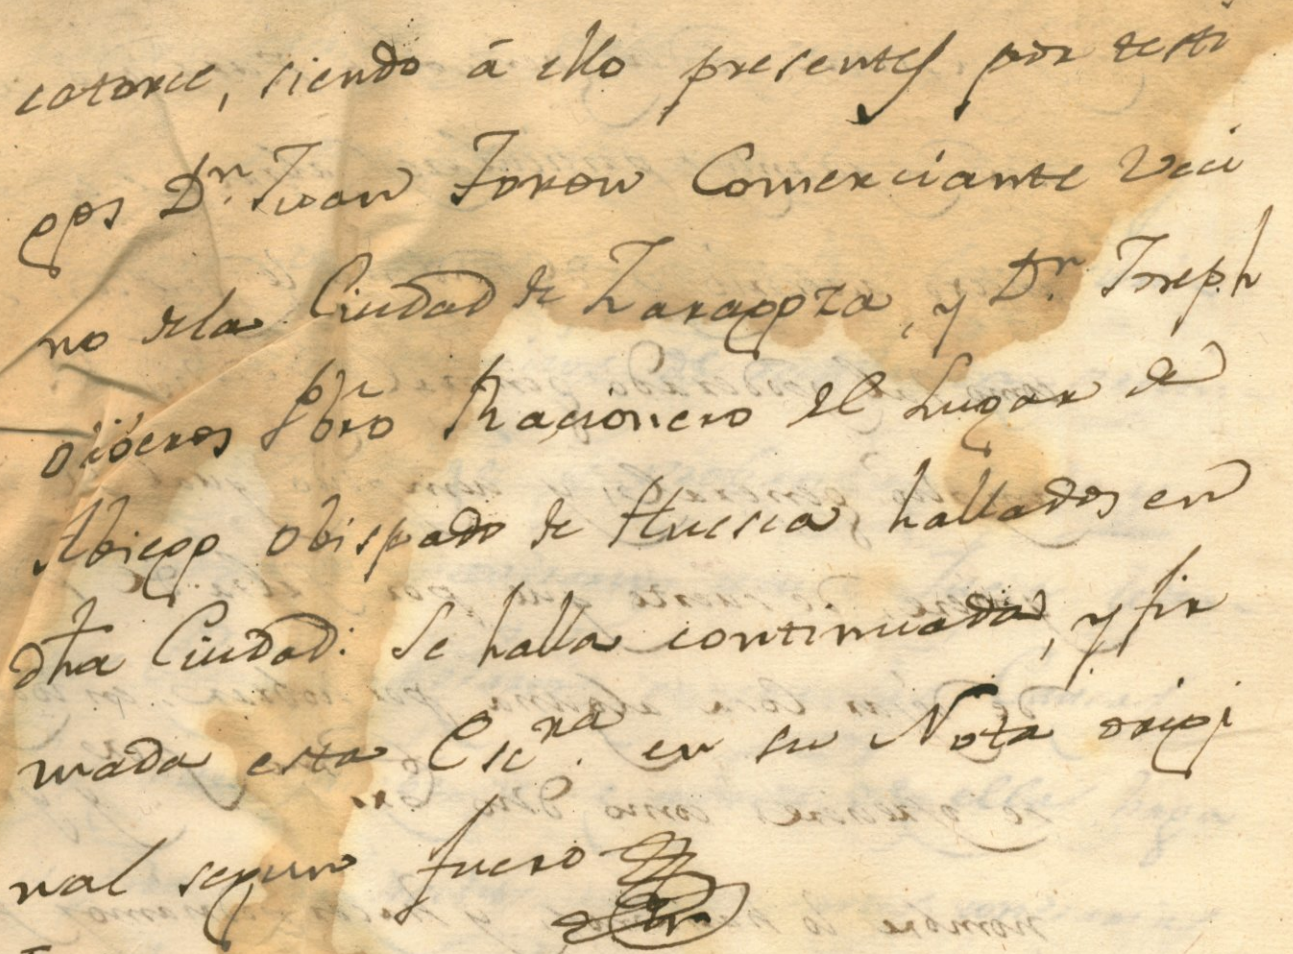 catorce, siendo á ello presentes por testi
gos Dn. Juan Toron Comerciante Veci
no dela Ciudad de Zaragoza, y Dn. Joseph
Phro Racionero del Lugar de
Abiego Obispado de Huesca hallados en
dha Ciudad. Se halla continuada, y fir
mada esta Escra. en su Nota origi
nal segun fuero